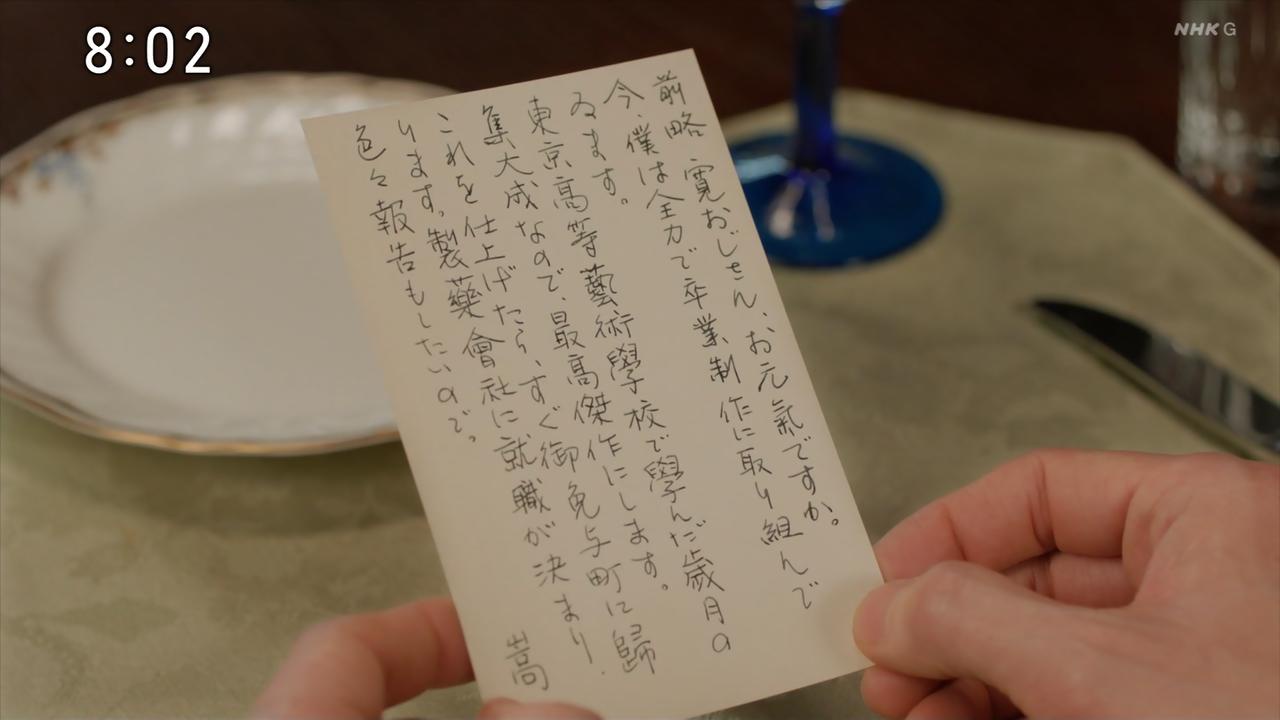 8:02
NHK G
前略 寛おじさん、お元氣ですか。
今、僕は全力で卒業制作に取り組んで
ゐます。
東京高等藝術學校で學んだ歳月の
集大成なので、最高傑作にします。
これを仕上げたら、すぐ御免与町に歸
ります。製藥會社に就職が決まり、
色々報告もしたいので。
嵩